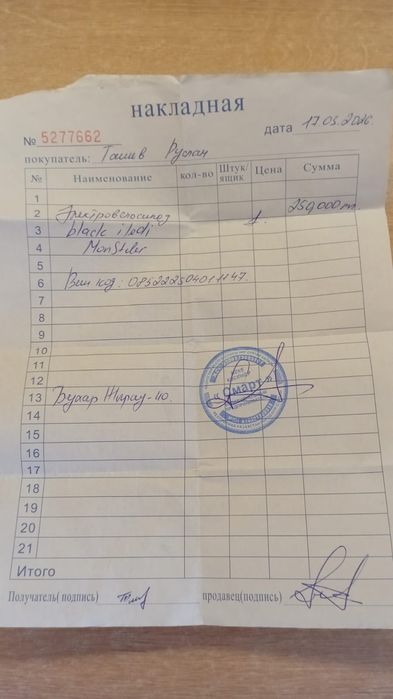 накладная
№ 5277662
дата 17.05.2026
покупатель: Ташив Руслан
№ Наименование кол-во Штук/ящик Цена Сумма
1
2 Электровелосипед 1. 250,000тг
3 black
4 Monster
5
6 Вин код: 085222504011147.
7
8
9
10
11
12
13 Бухар Жырау-110.
14
15
16
17
18
19
20
21
«Смарт»
Итого
Получатель( подпись) продавец(подпись)